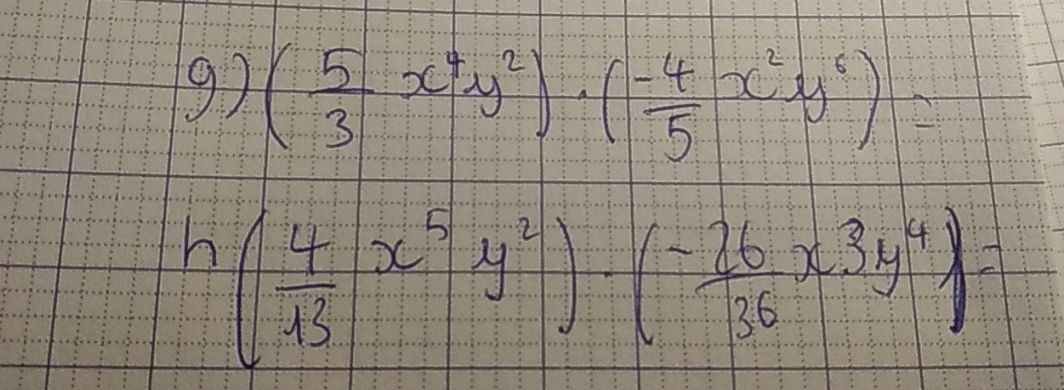 g) (5/3 x⁴y²) · (-4/5 x²y⁶) =
h (4/13 x⁵ y²) · (-26/36 x3y⁴) =